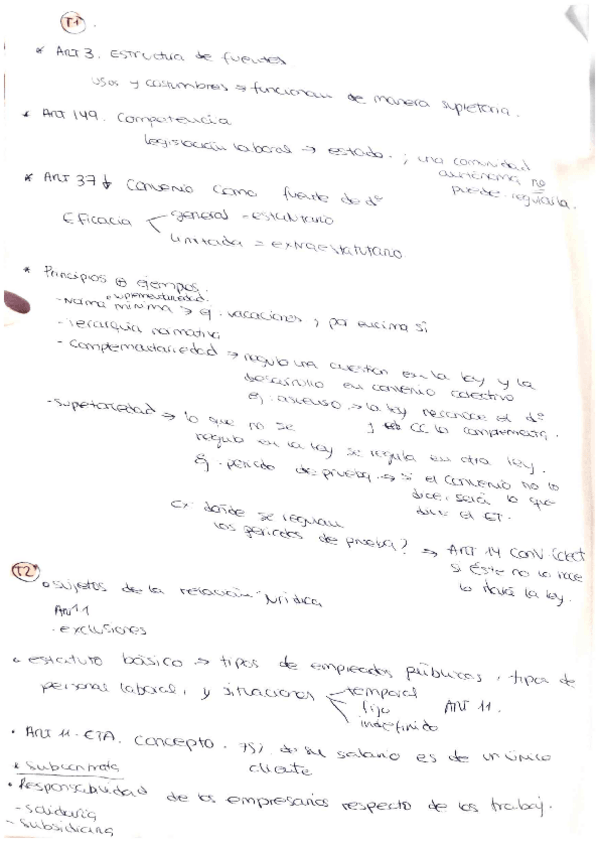 T1
* ART 3. Estructura de fuentes
usos y costumbres → funcionan de manera supletoria.
* ART 149. Competencia
legislación laboral → estado. ; una comunidad
autónoma no
puede regularla.
* ART 37 ↓ Convenio como fuente de dº
Eficacia general - estatutario
limitada = extraestatutario
* Principios ⊕ ejemplos.
o suplementariedad.
- Norma mínima → ej. vacaciones, por encima sí
- Jerarquía normativa
- Complementariedad → regulo una cuestión en la ley y la
desarrollo en convenio colectivo
ej: ascenso → la ley reconoce el dº
y CC lo complementa.
- Supletoriedad → lo que no se
regula en la ley se regula en otra ley.
Ej. período de prueba → si el convenio no lo
dice, será lo que
dice el ET.
Ex: dónde se regulan
los períodos de prueba? → ART 14
si éste no lo hace
lo hará la ley.
T2
o sujetos de la relación jurídica
Art 1
. exclusiones
o estatuto básico → tipos de empleados públicos, tipos de
personal laboral, y situaciones temporal
fijo ART 11.
indefinido
• ART 11 - ETA. concepto. 75% de su salario es de un único
cliente
* Subcontrata
• Responsabilidad de los empresarios respecto de los trabaj.
- solidaria
- subsidiaria